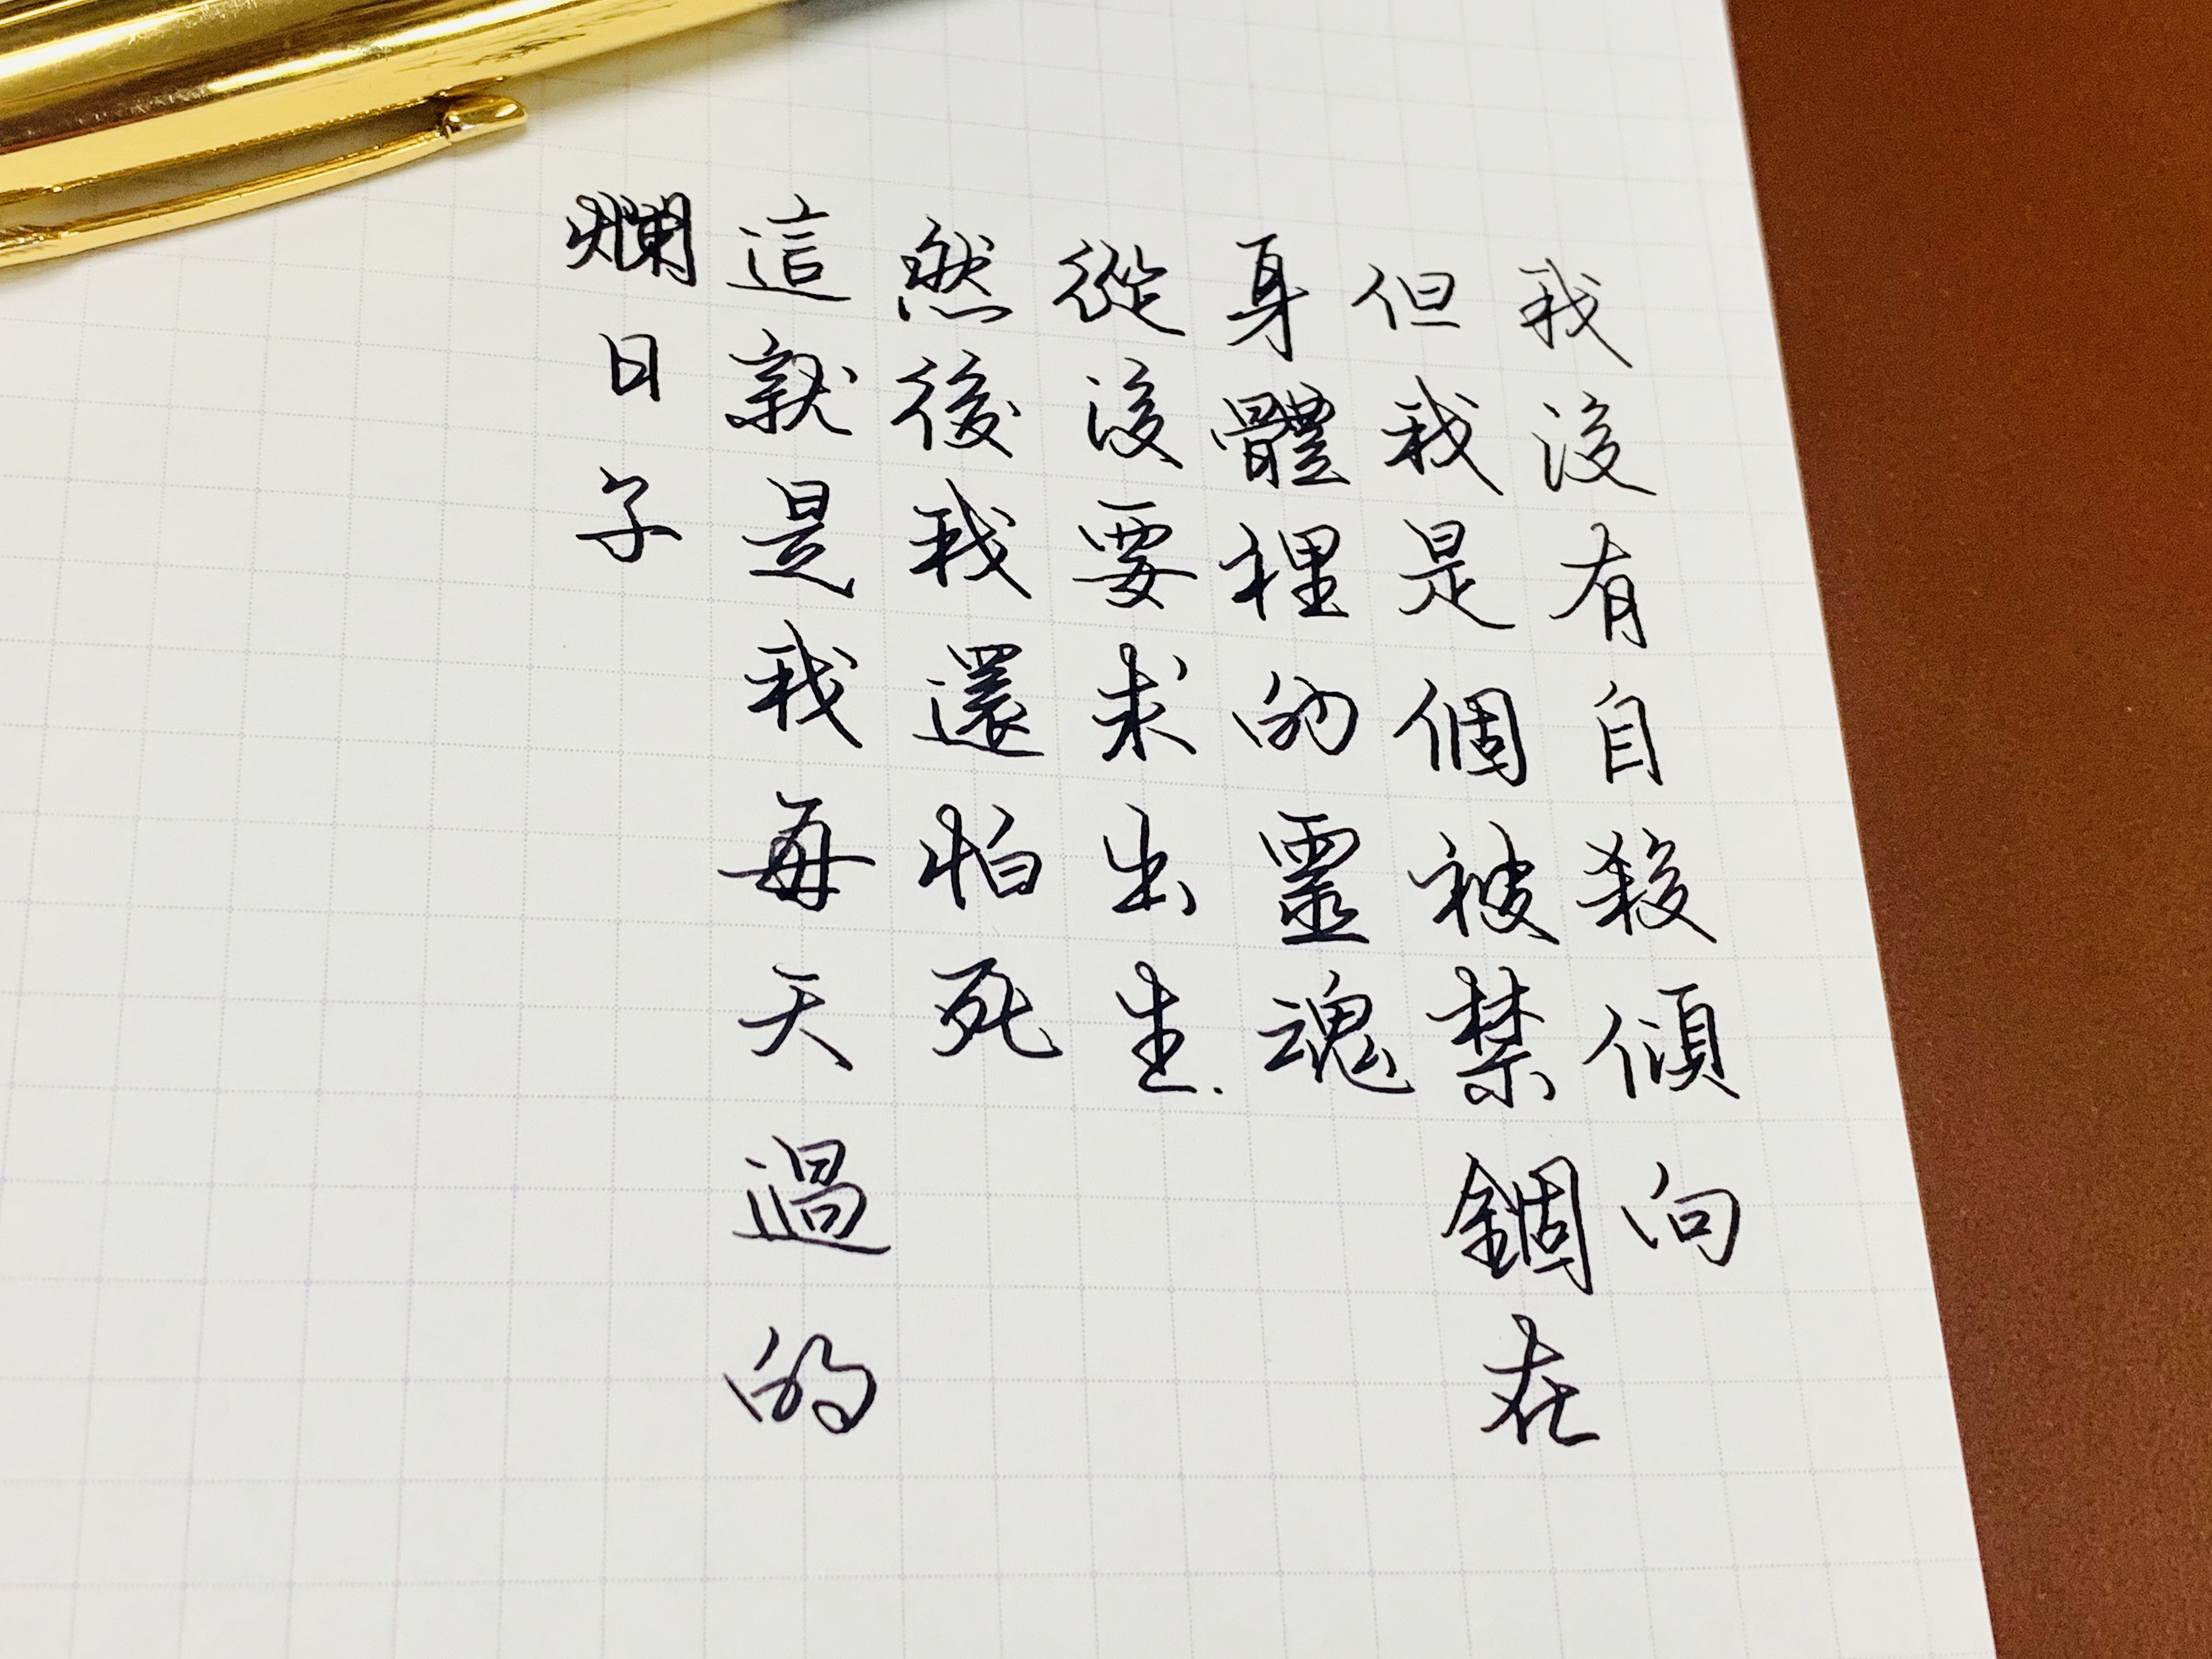 我沒有自殺傾向
但我是個被禁錮在
身體裡的靈魂
從沒要求出生.
然後我還怕死
這就是我每天過的
爛日子